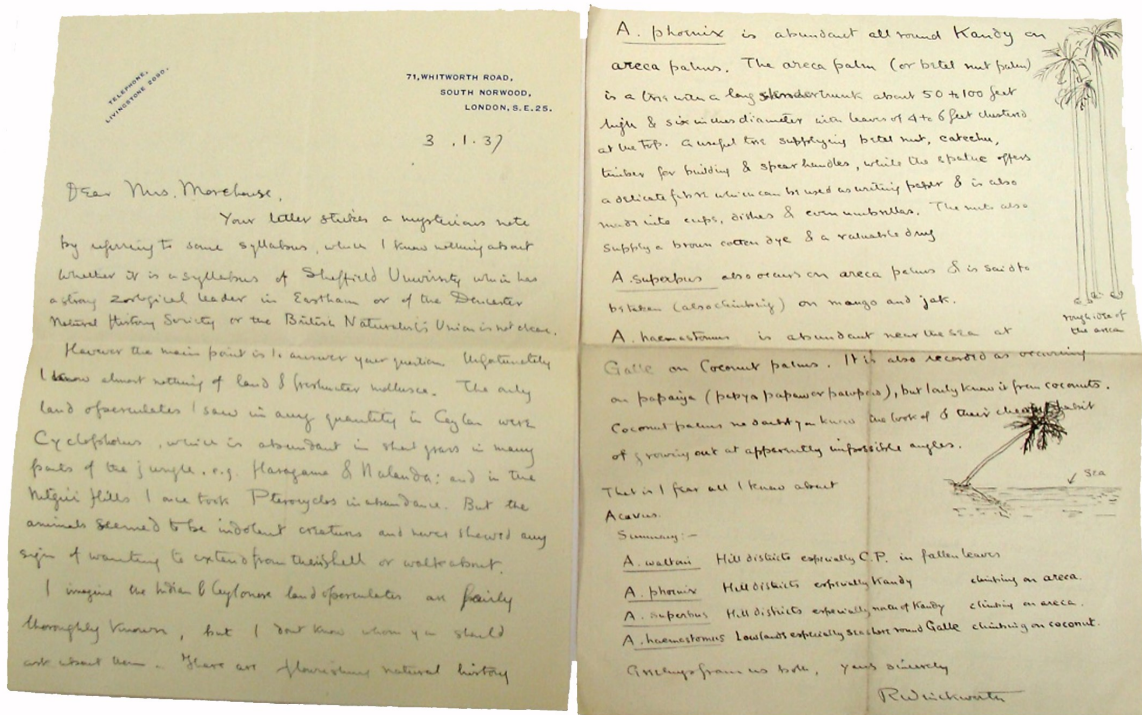 TELEPHONE,
LIVINGSTONE 2090.
71, WHITWORTH ROAD,
SOUTH NORWOOD,
LONDON, S.E. 25.
3.1.37
Dear Mrs. Morehouse,
Your letter strikes a mysterious note
by referring to some syllabus, which I know nothing about
Whether it is a syllabus of Sheffield University which has
a strong zoological leader in Eastham or of the
Natural History Society or the British Naturalists Union is not clear.
However the main point is to answer your question. Unfortunately
I know almost nothing of land & freshwater mollusca. The only
land operculates I saw in any quantity in Ceylon were
Cyclophorus, which is abundant in short grass in many
parts of the jungle, e.g. & Nalanda: and in the
Nilgiri Hills I once took Pterocyclos in abundance. But the
animals seemed to be indolent creatures and never shewed any
sign of wanting to extend from their shell or walk about.
I imagine the Indian & Ceylonese land operculates are fairly
thoroughly known, but I dont know whom you should
ask about them. There are flourishing natural history
A. phoenix is abundant all round Kandy on
areca palms. The areca palm (or betel nut palm)
is a tree with a long slender trunk about 50 to 100 feet
high & six inches diameter with leaves of 4 to 6 feet clustered
at the top. A useful tree supplying betel nut, catechu,
timber for building & spear handles, while the spathe offers
a delicate fibre which can be used as writing paper & is also
made into cups, dishes & even umbrellas. The nuts also
supply a brown cotton dye & a valuable drug
A. superbus also occurs on areca palms & is said to
be taken (also climbing) on mango and jak.
rough idea of
the areca
A. haemastomus is abundant near the sea at
Galle on Coconut palms. It is also recorded as occurring
on papaiya (papya papaw or pawpaw), but I only know it from coconuts.
Coconut palms no doubt you know the look of & their habit
of growing out at apparently impossible angles.
sea
That is I fear all I know about
Acavus.
Summary:-
A. waltoni Hill districts especially C.P. in fallen leaves
A. phoenix Hill districts especially Kandy climbing on areca.
A. superbus Hill districts especially of Kandy climbing on areca.
A. haemastomus Lowlands especially sea shore round Galle climbing on coconut.
Greetings from us both, Yours sincerely
R Winckworth